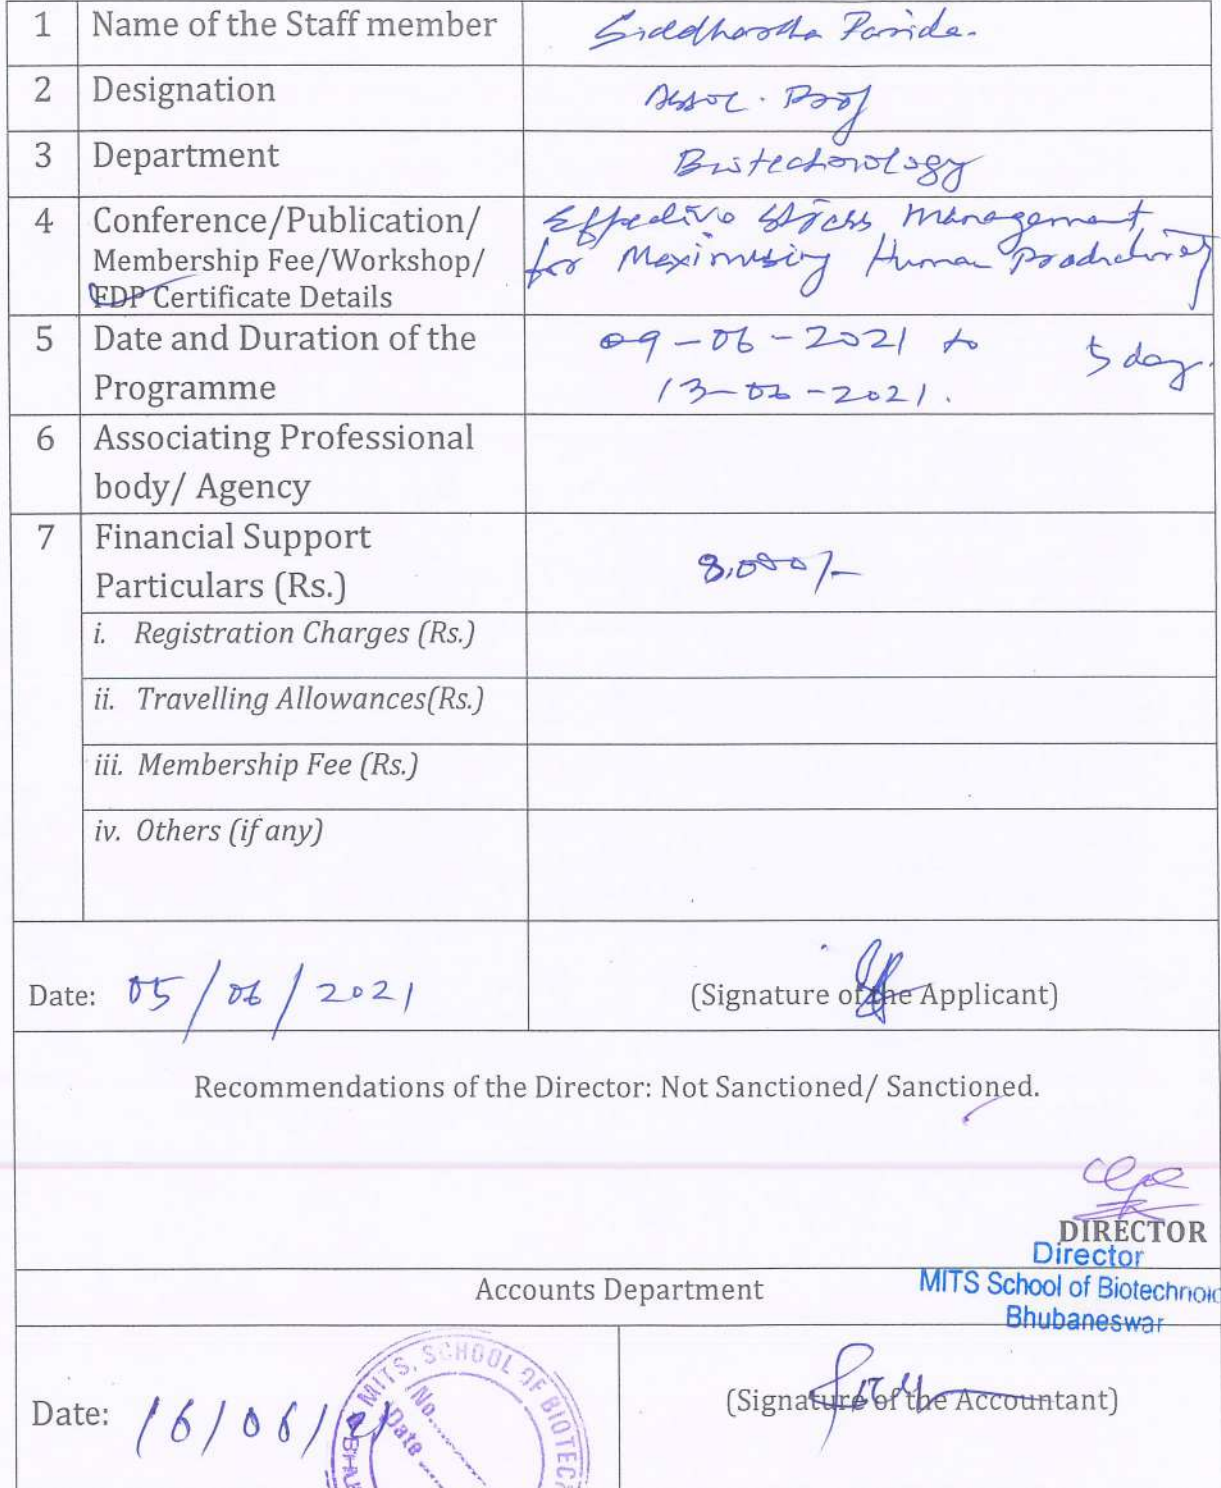 1 Name of the Staff member Siddhartha Parida.
2 Designation Assoc. Prof
3 Department Biotechnology
4 Conference/Publication/ Effective Stress Management
Membership Fee/Workshop/ for Maximising Human Productivity
FDP Certificate Details
5 Date and Duration of the 09-06-2021 to 5 day.
Programme 13-06-2021.
6 Associating Professional
body/ Agency
7 Financial Support
Particulars (Rs.) 8,000/-
i. Registration Charges (Rs.)
ii. Travelling Allowances(Rs.)
iii. Membership Fee (Rs.)
iv. Others (if any)
Date: 05/06/2021 (Signature of the Applicant)
Recommendations of the Director: Not Sanctioned/ Sanctioned.
DIRECTOR
Director
MITS School of Biotechnolo
Bhubaneswar
Accounts Department
MITS, SCHOOL OF BIOTEC
No.......
Date ......
Date: 16/06/21 (Signature of the Accountant)